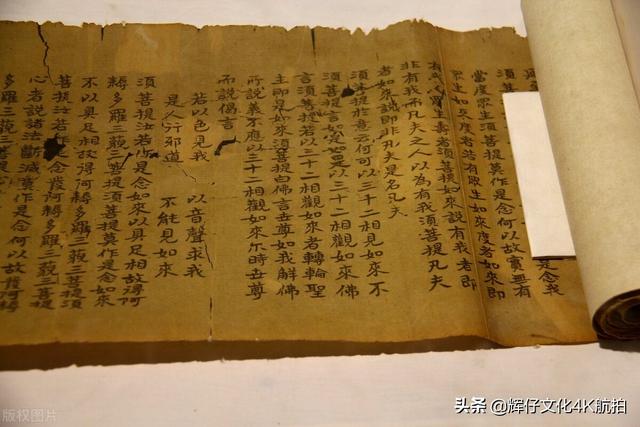 須菩
是念我
當度眾生須菩提莫作是念何以故實無有
眾生如來度者若有眾生如來度者如來即
有我人眾生壽者須菩提如來說有我者即
非有我而凡夫之人以為有我須菩提凡夫
者如來說即非凡夫是名凡夫
須菩提於意云何可以三十二相見如來不
須菩提言如是如是以三十二相觀如來佛
言須菩提若以三十二相觀如來者轉輪聖
主即是如來須菩提白佛言世尊如我解佛
所說義不應以三十二相觀如來尒時世尊
而說偈言
若以色見我 以音聲求我
是人行邪道 不能見如來
須菩提汝若作是念如來以具足相故得阿
耨多羅三藐三菩提須菩提莫作是念如來
不以具足相故得阿耨多羅三藐三菩提須
菩提汝若作是念發阿耨多羅三藐三菩提
心者說諸法斷滅莫作是念何以故發阿耨
多羅三藐三菩提
版权图片
头条 @辉仔文化4K航拍